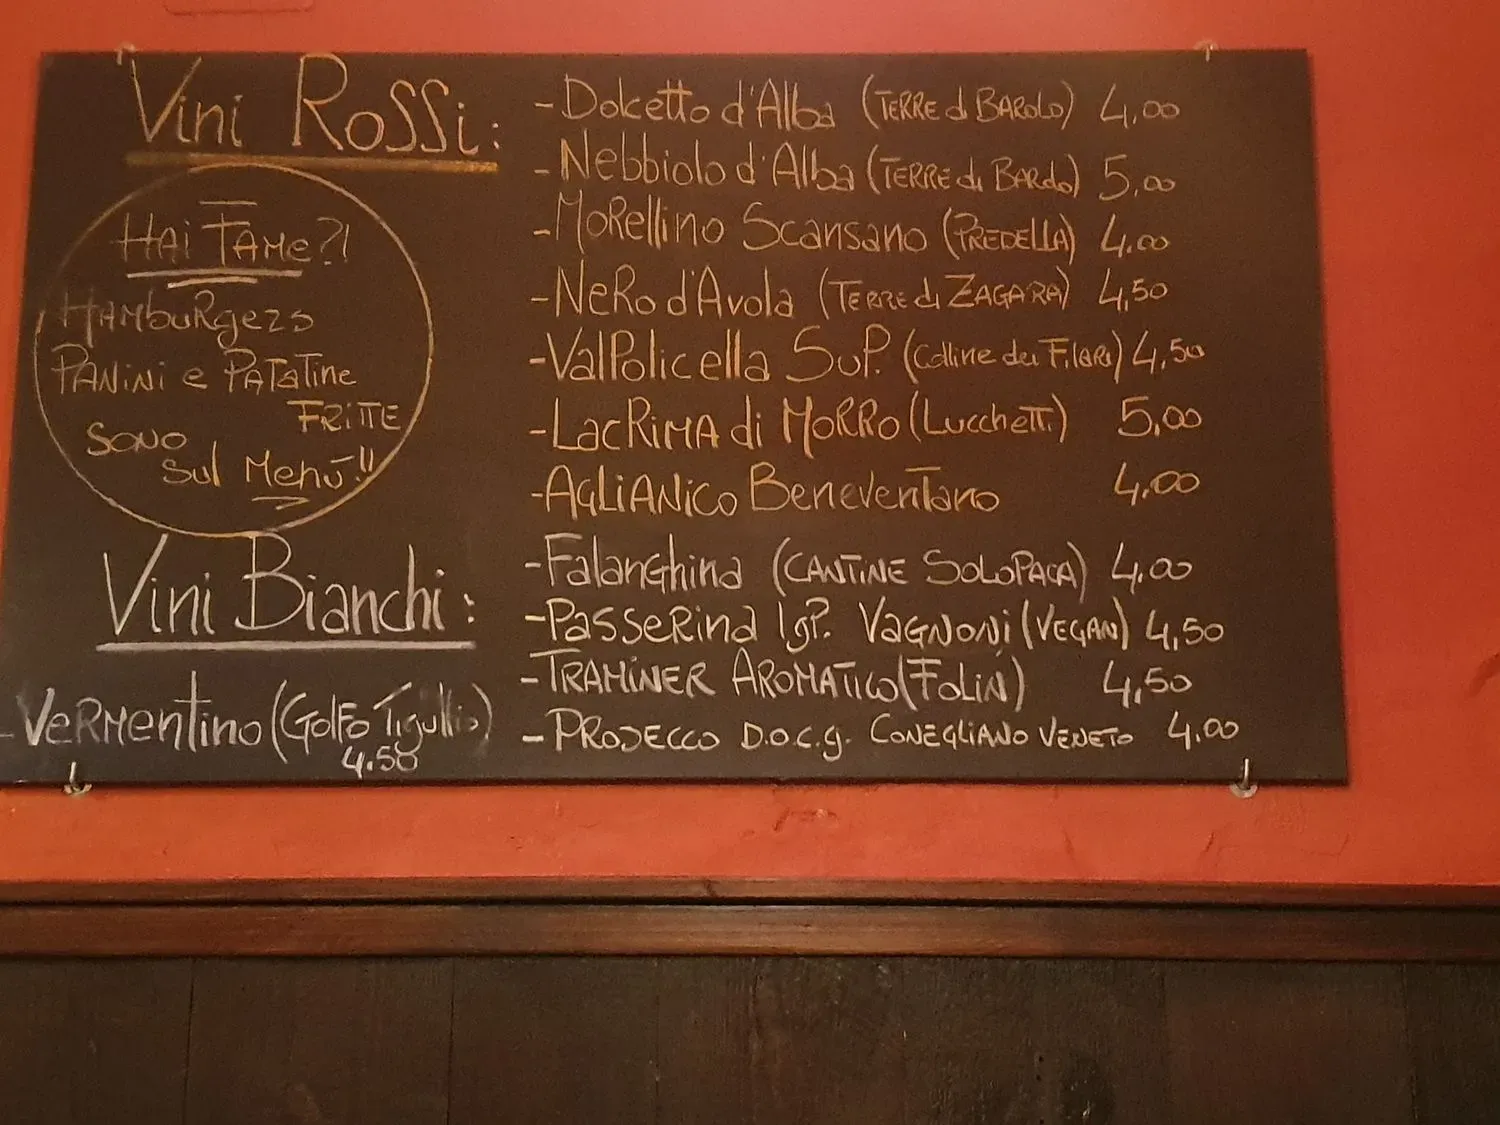 Vini Rossi:
HAi FAME?!
HAMbuRgers
PANiNi e PATATiNe
FRiTTE
SONO
sul Menù!!
- Dolcetto d'Alba (TERRE di BAROLO) 4,00
- Nebbiolo d'Alba (TERRE di BAROLO) 5,00
- MoRellino Scansano (PREDELLA) 4.00
- NeRo d'Avola (TERRE di ZAGARA) 4,50
- ValPolicella SuP. (Colline dei Filari) 4,50
- LacRiMA di MORRO (Lucchetti) 5,00
- AGLiANico BenevenTano 4.00
Vini Bianchi:
- VeRMentino (Golfo Tigullio)
4.50
- FalanGhina (CANTINE SOLOPACA) 4.00
- PasseRina IgP. VAGNONi (VEGAN) 4,50
- TRAMINER AROMATICO (FOLiNi) 4,50
- PROSECCO D.O.C.g. CONEGLIANO VENETO 4.00